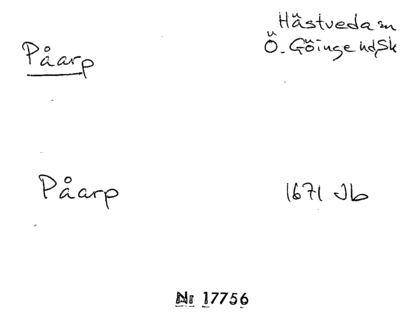 Påarp
Hästveda sn
Ö. Göinge hd, Sk
Påarp
1671 Jb
Nr 17756